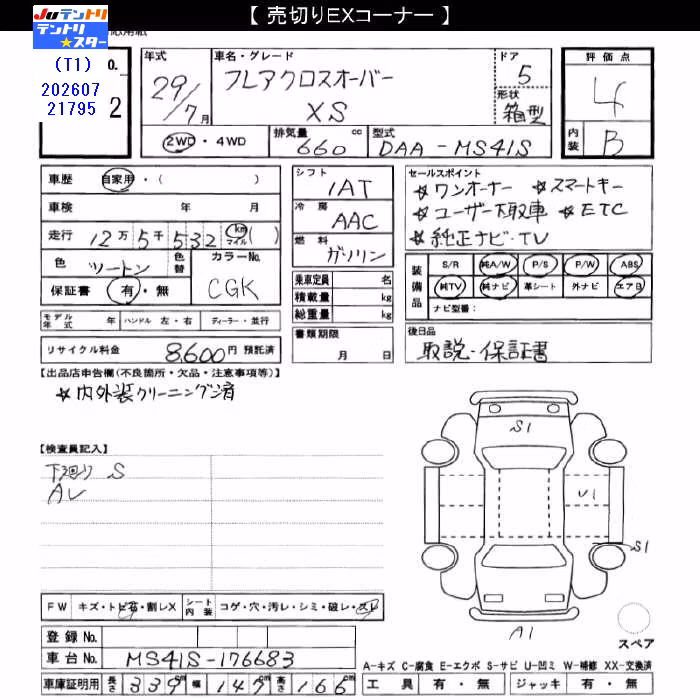 【 売切りEXコーナー 】
JUテントリ
テントリ★スター
(T1)
202607
21795
2
年式 29/7月
車名・グレード フレアクロスオーバー XS
ドア 5
形状 箱型
評価点 4
内装 B
2WD・4WD
排気量 660 cc
型式 DAA-MS41S
車歴 自家用・( )
車検 年 月
走行 12万5千532 km マイル ( )
色 ツートン 色替
カラーNo. CGK
保証書 有・無
モデル年式 年 ハンドル 左・右 ディーラー・並行
リサイクル料金 8,600円 預託済
シフト 1AT
冷房 AAC
燃料 ガソリン
乗車定員 名
積載量 kg
総重量 kg
書類期限
月 日
セールスポイント
☆ワンオーナー ☆スマートキー
☆ユーザー下取車 ☆ETC
☆純正ナビ・TV
装備品 S/R 純A/W P/S P/W ABS
純TV 純ナビ 革シート 外ナビ エアB
ナビ型番:
後日品
取説・保証書
【出品店申告欄(不良箇所・欠品・注意事項等)】
☆内外装クリーニング済
【検査員記入】
下廻り S
S1
U1
S1
A1
スペア
FW キズ・トビ石・割レX シート内装 コゲ・穴・汚レ・シミ・破レ・スレ
登録 No.
車台 No. MS41S-176683
車庫証明用 長さ 339cm 幅 147cm 高さ 166cm
A-キズ C-腐食 E-エクボ S-サビ U-凹ミ W-補修 XX-交換済
工具 有・無 ジャッキ 有・無